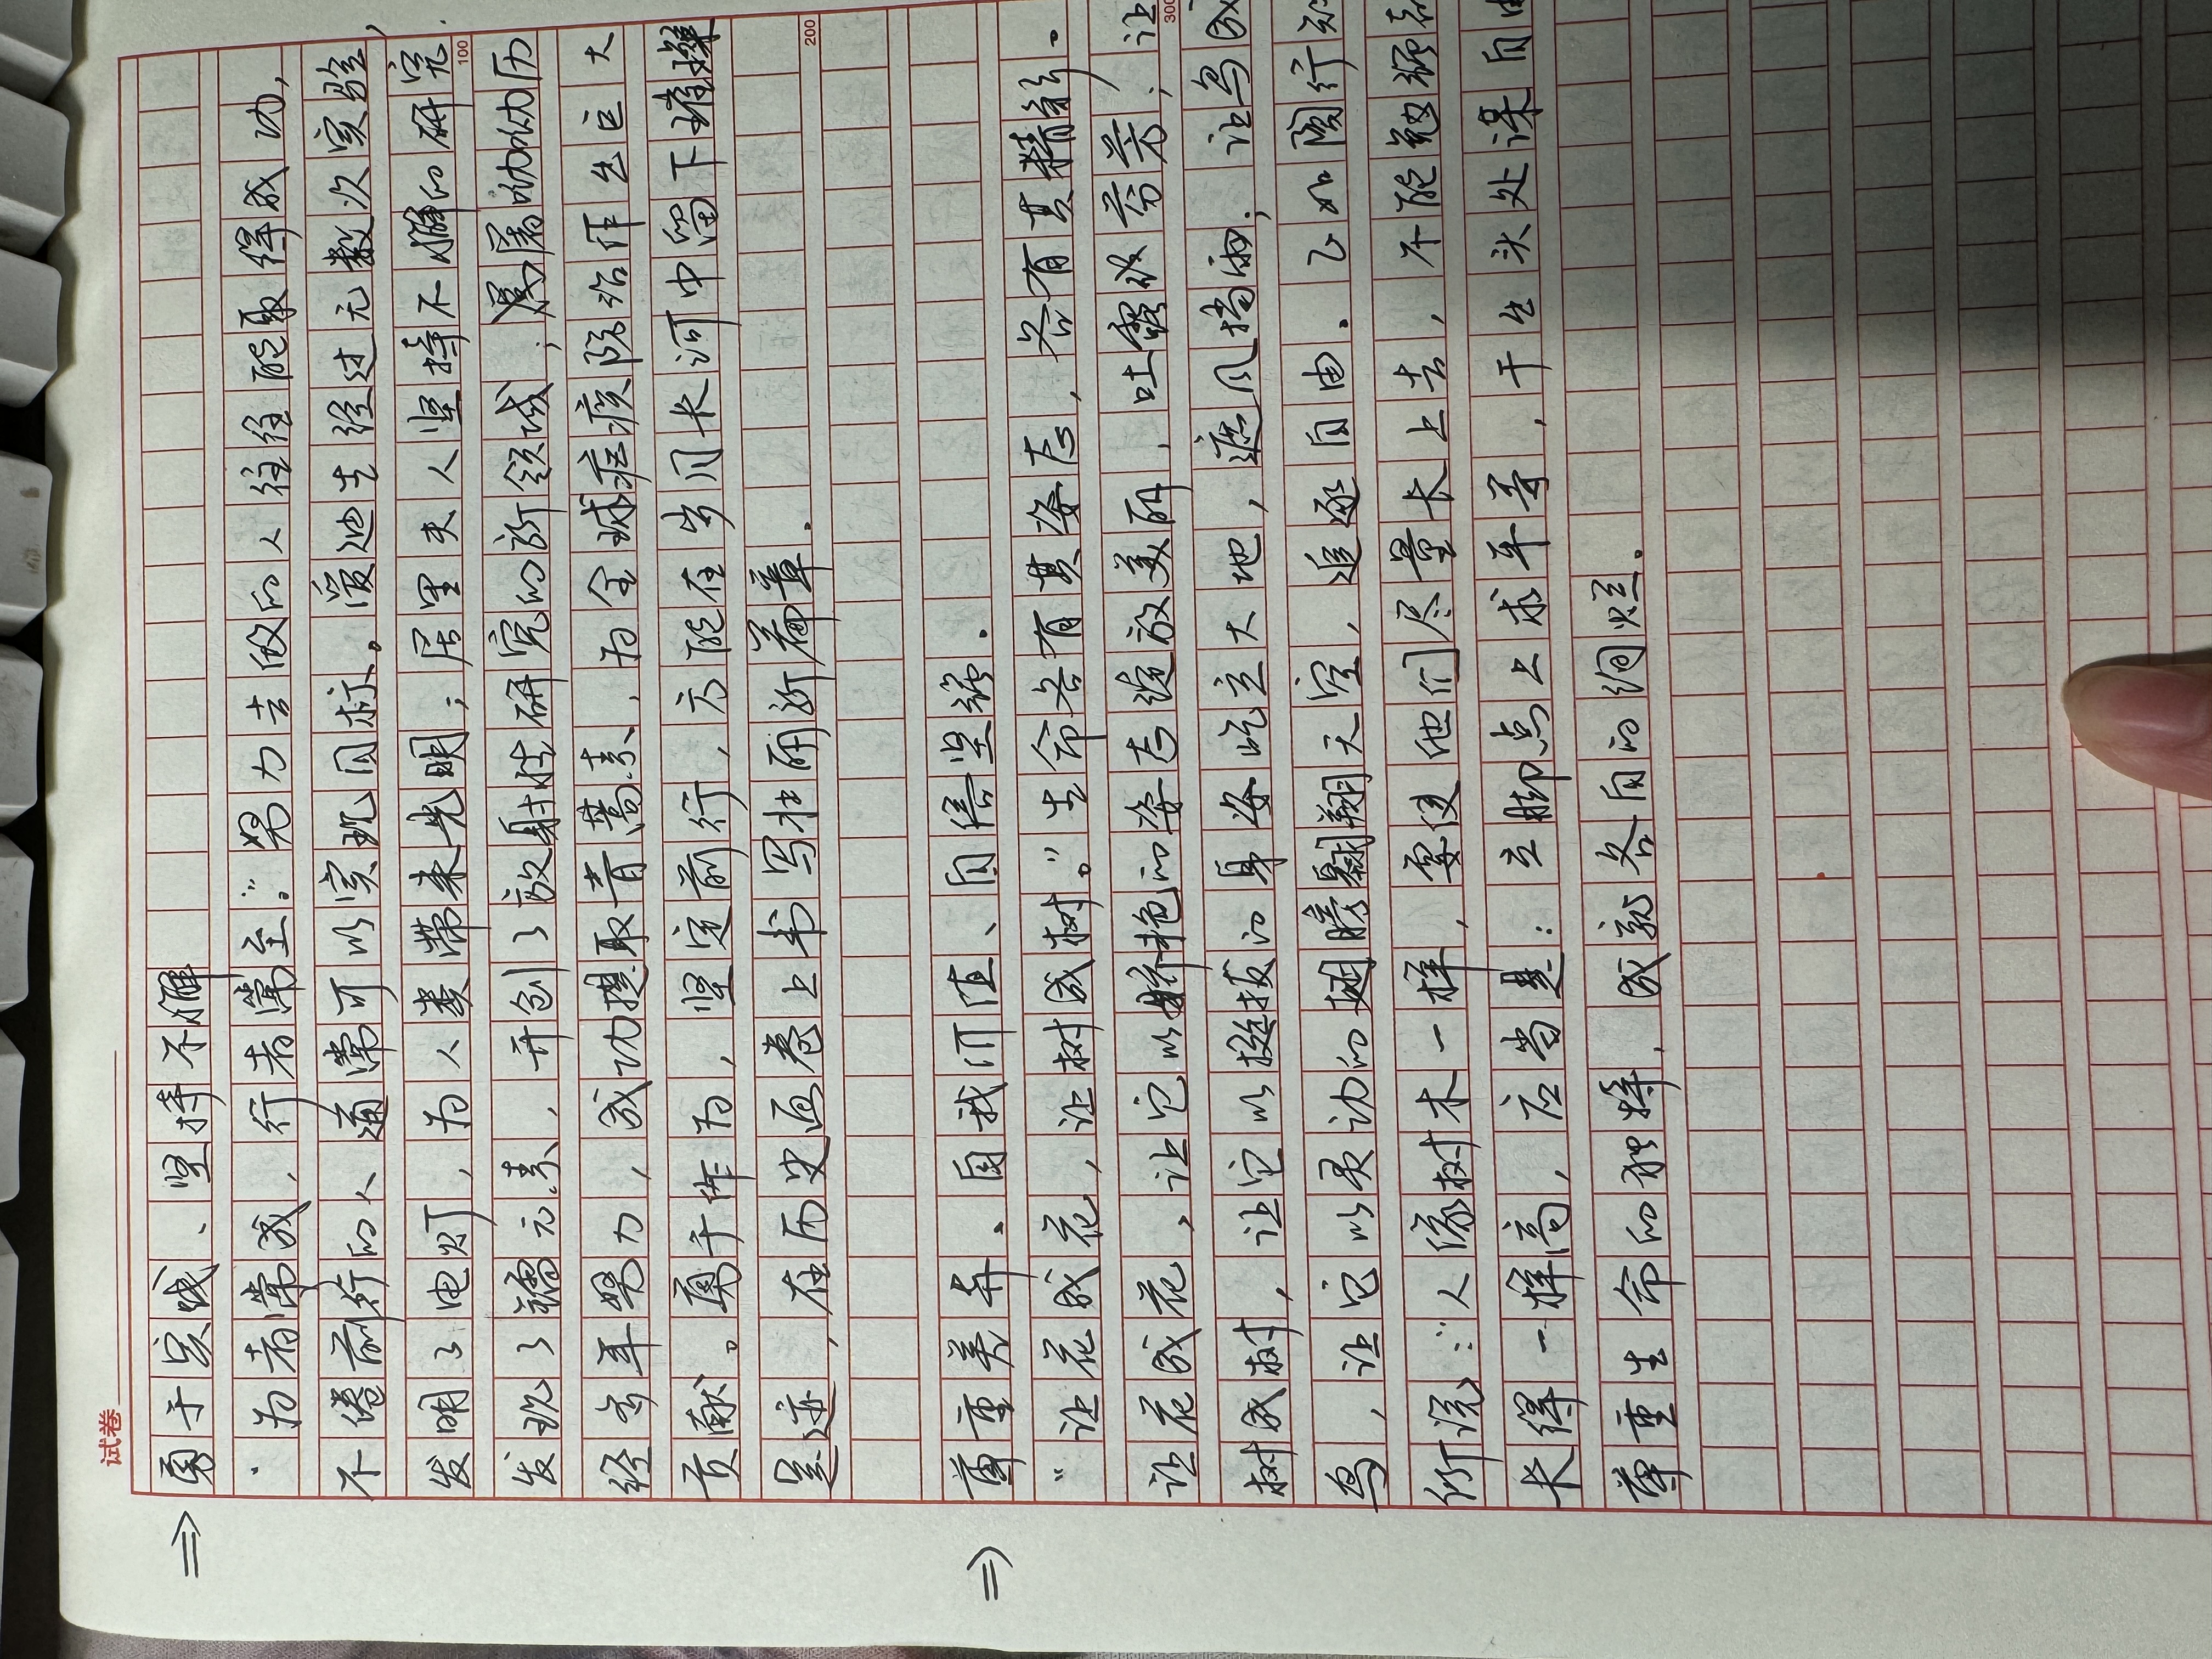 试卷
⇒ 勇于实践、坚持不懈
“为者常成，行者常至。”努力去做的人往往能取得成功，
不倦前行的人通常可以实现目标。爱迪生经过无数次实验，
发明了电灯，为人类带来光明；居里夫人坚持不懈的研究，
100
发现了镭元素，开创了放射性研究的新领域；屠呦呦历
经多年努力，成功提取青蒿素，为全球疟疾防治作出巨大
贡献。勇于作为，坚定前行，方能在岁月长河中留下璀璨
足迹，在历史画卷上书写壮丽新篇章．
200
⇒ 尊重差异、自我价值、自信坚强．
“让花成花，让树成树。”生命各有其姿态，各有其精彩。
让花成花，让它以娇艳的姿态绽放美丽，吐露芬芳；让
300
树成树，让它以挺拔的身姿屹立大地，遮风挡雨；让鸟成
鸟，让它以灵动的翅膀翱翔天空，追逐自由。正如陶行知
所说：“人像树木一样，要使他们尽量长上去，不能勉强都
长得一样高，应当是：立脚点上求平等，于出头处谋自由
尊重生命的独特，成就各自的绚烂。